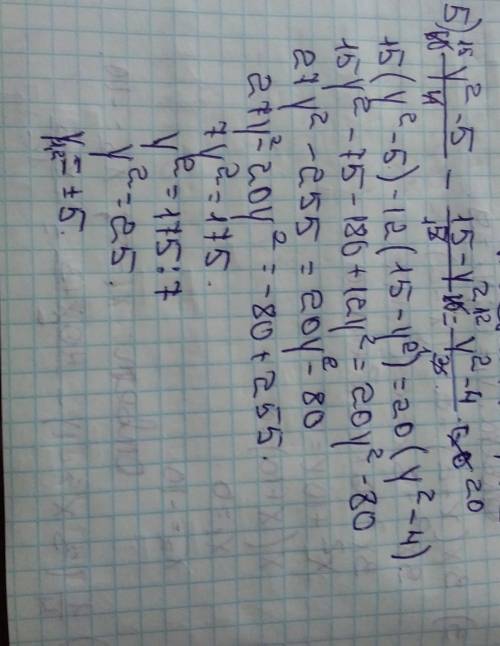 5) (y² - 5)/4 - (15 - y²)/5 = (y² - 4)/3 · 60 20
15(y² - 5) - 12(15 - y²) = 20(y² - 4)
15y² - 75 - 180 + 12y² = 20y² - 80
27y² - 255 = 20y² - 80
27y² - 20y² = -80 + 255.
7y² = 175.
y² = 175 : 7
y² = 25.
y₁,₂ = ±5.